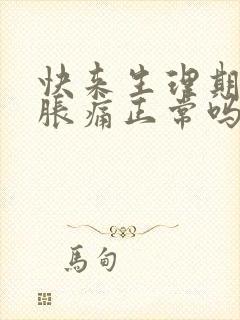 快来生理期
脹痛正常吗
馬甸